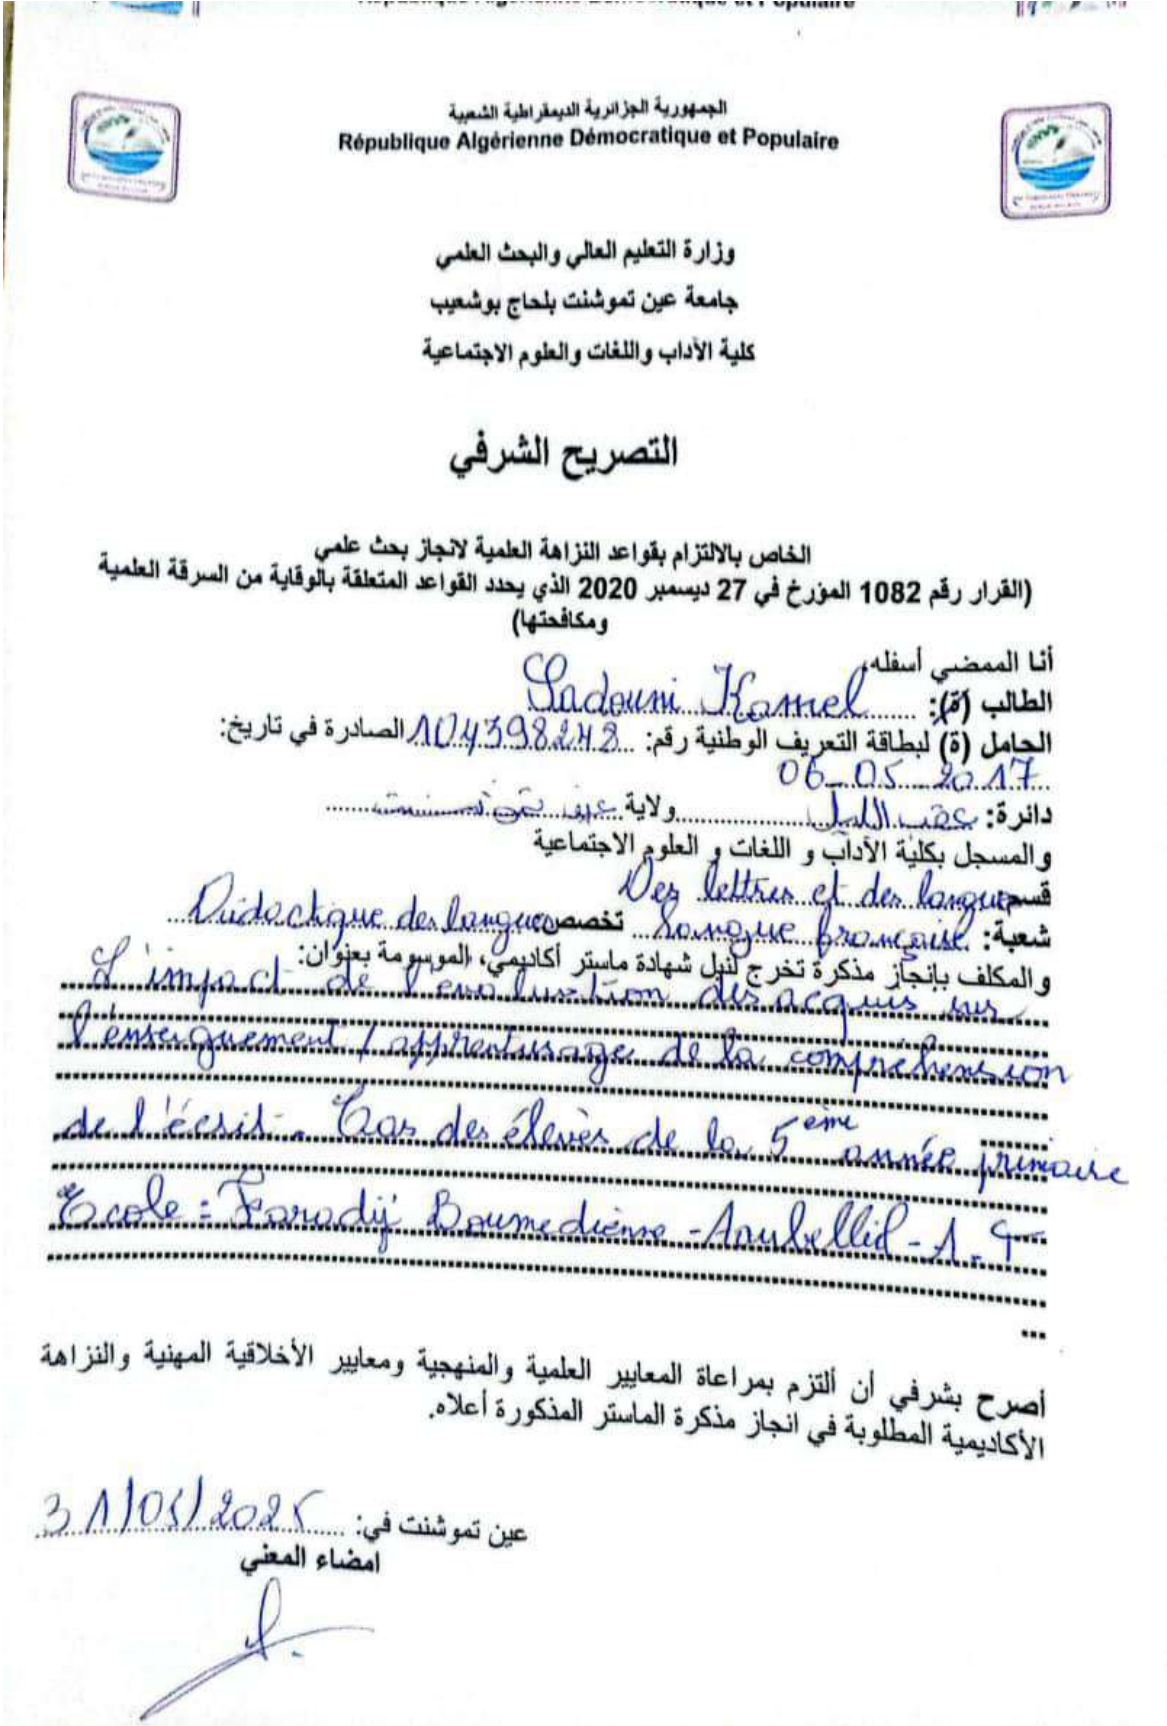 République Algérienne Démocratique et Populaire
الجمهورية الجزائرية الديمقراطية الشعبية
République Algérienne Démocratique et Populaire
وزارة التعليم العالي والبحث العلمي
جامعة عين تموشنت بلحاج بوشعيب
كلية الآداب واللغات والعلوم الاجتماعية
التصريح الشرفي
الخاص بالالتزام بقواعد النزاهة العلمية لانجاز بحث علمي
(القرار رقم 1082 المؤرخ في 27 ديسمبر 2020 الذي يحدد القواعد المتعلقة بالوقاية من السرقة العلمية
ومكافحتها)
أنا الممضي أسفله،
الطالب (ة): Sadouni Kamel
الحامل (ة) لبطاقة التعريف الوطنية رقم: 104398248 الصادرة في تاريخ:
06-05-2017
دائرة: عقب الليل ولاية عين تموشنت
والمسجل بكلية الآداب و اللغات و العلوم الاجتماعية
قسم Des lettres et des langues
شعبة: Langue française تخصص Didactique des langues
والمكلف بإنجاز مذكرة تخرج لنيل شهادة ماستر أكاديمي، الموسومة بعنوان:
L'impact de l'évaluation des acquis sur
l'enseignement / apprentissage de la compréhension
de l'écrit. Cas des élevès de la 5ème année primaire
Ecole: Faradji Boumediène - - A.T
أصرح بشرفي أن ألتزم بمراعاة المعايير العلمية والمنهجية ومعايير الأخلاقية المهنية والنزاهة
الأكاديمية المطلوبة في انجاز مذكرة الماستر المذكورة أعلاه.
عين تموشنت في: 31/05/2025
امضاء المعني